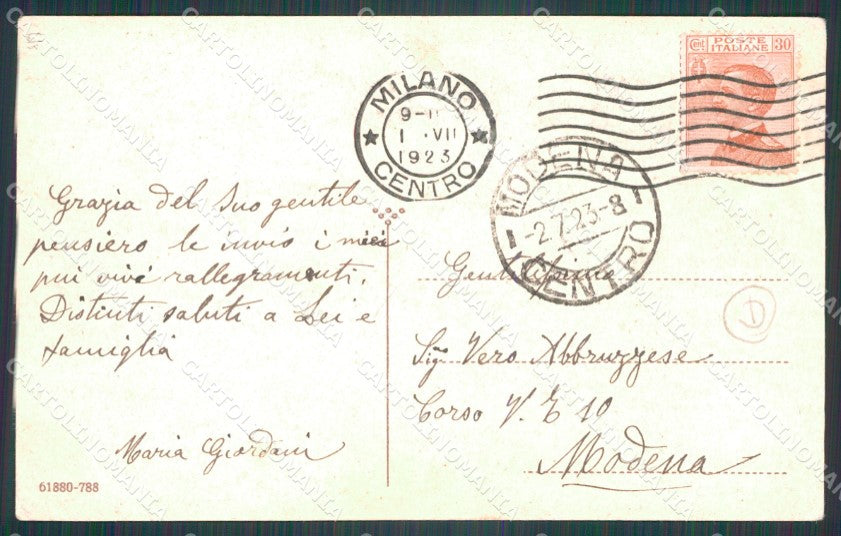 Cent POSTE ITALIANE 30
MILANO
9-11
1 · VII
1923
CENTRO
MODENA
-2.7.23-8
CENTRO
Grazia del suo gentile
pensiero le invio i miei
più vivi rallegramenti.
Distinti saluti a Lei e
famiglia
Maria Giordani
61880-788
Sig Vero Abbruzzese
Corso V. E 10
Modena
D
CARTOLINOMANIA